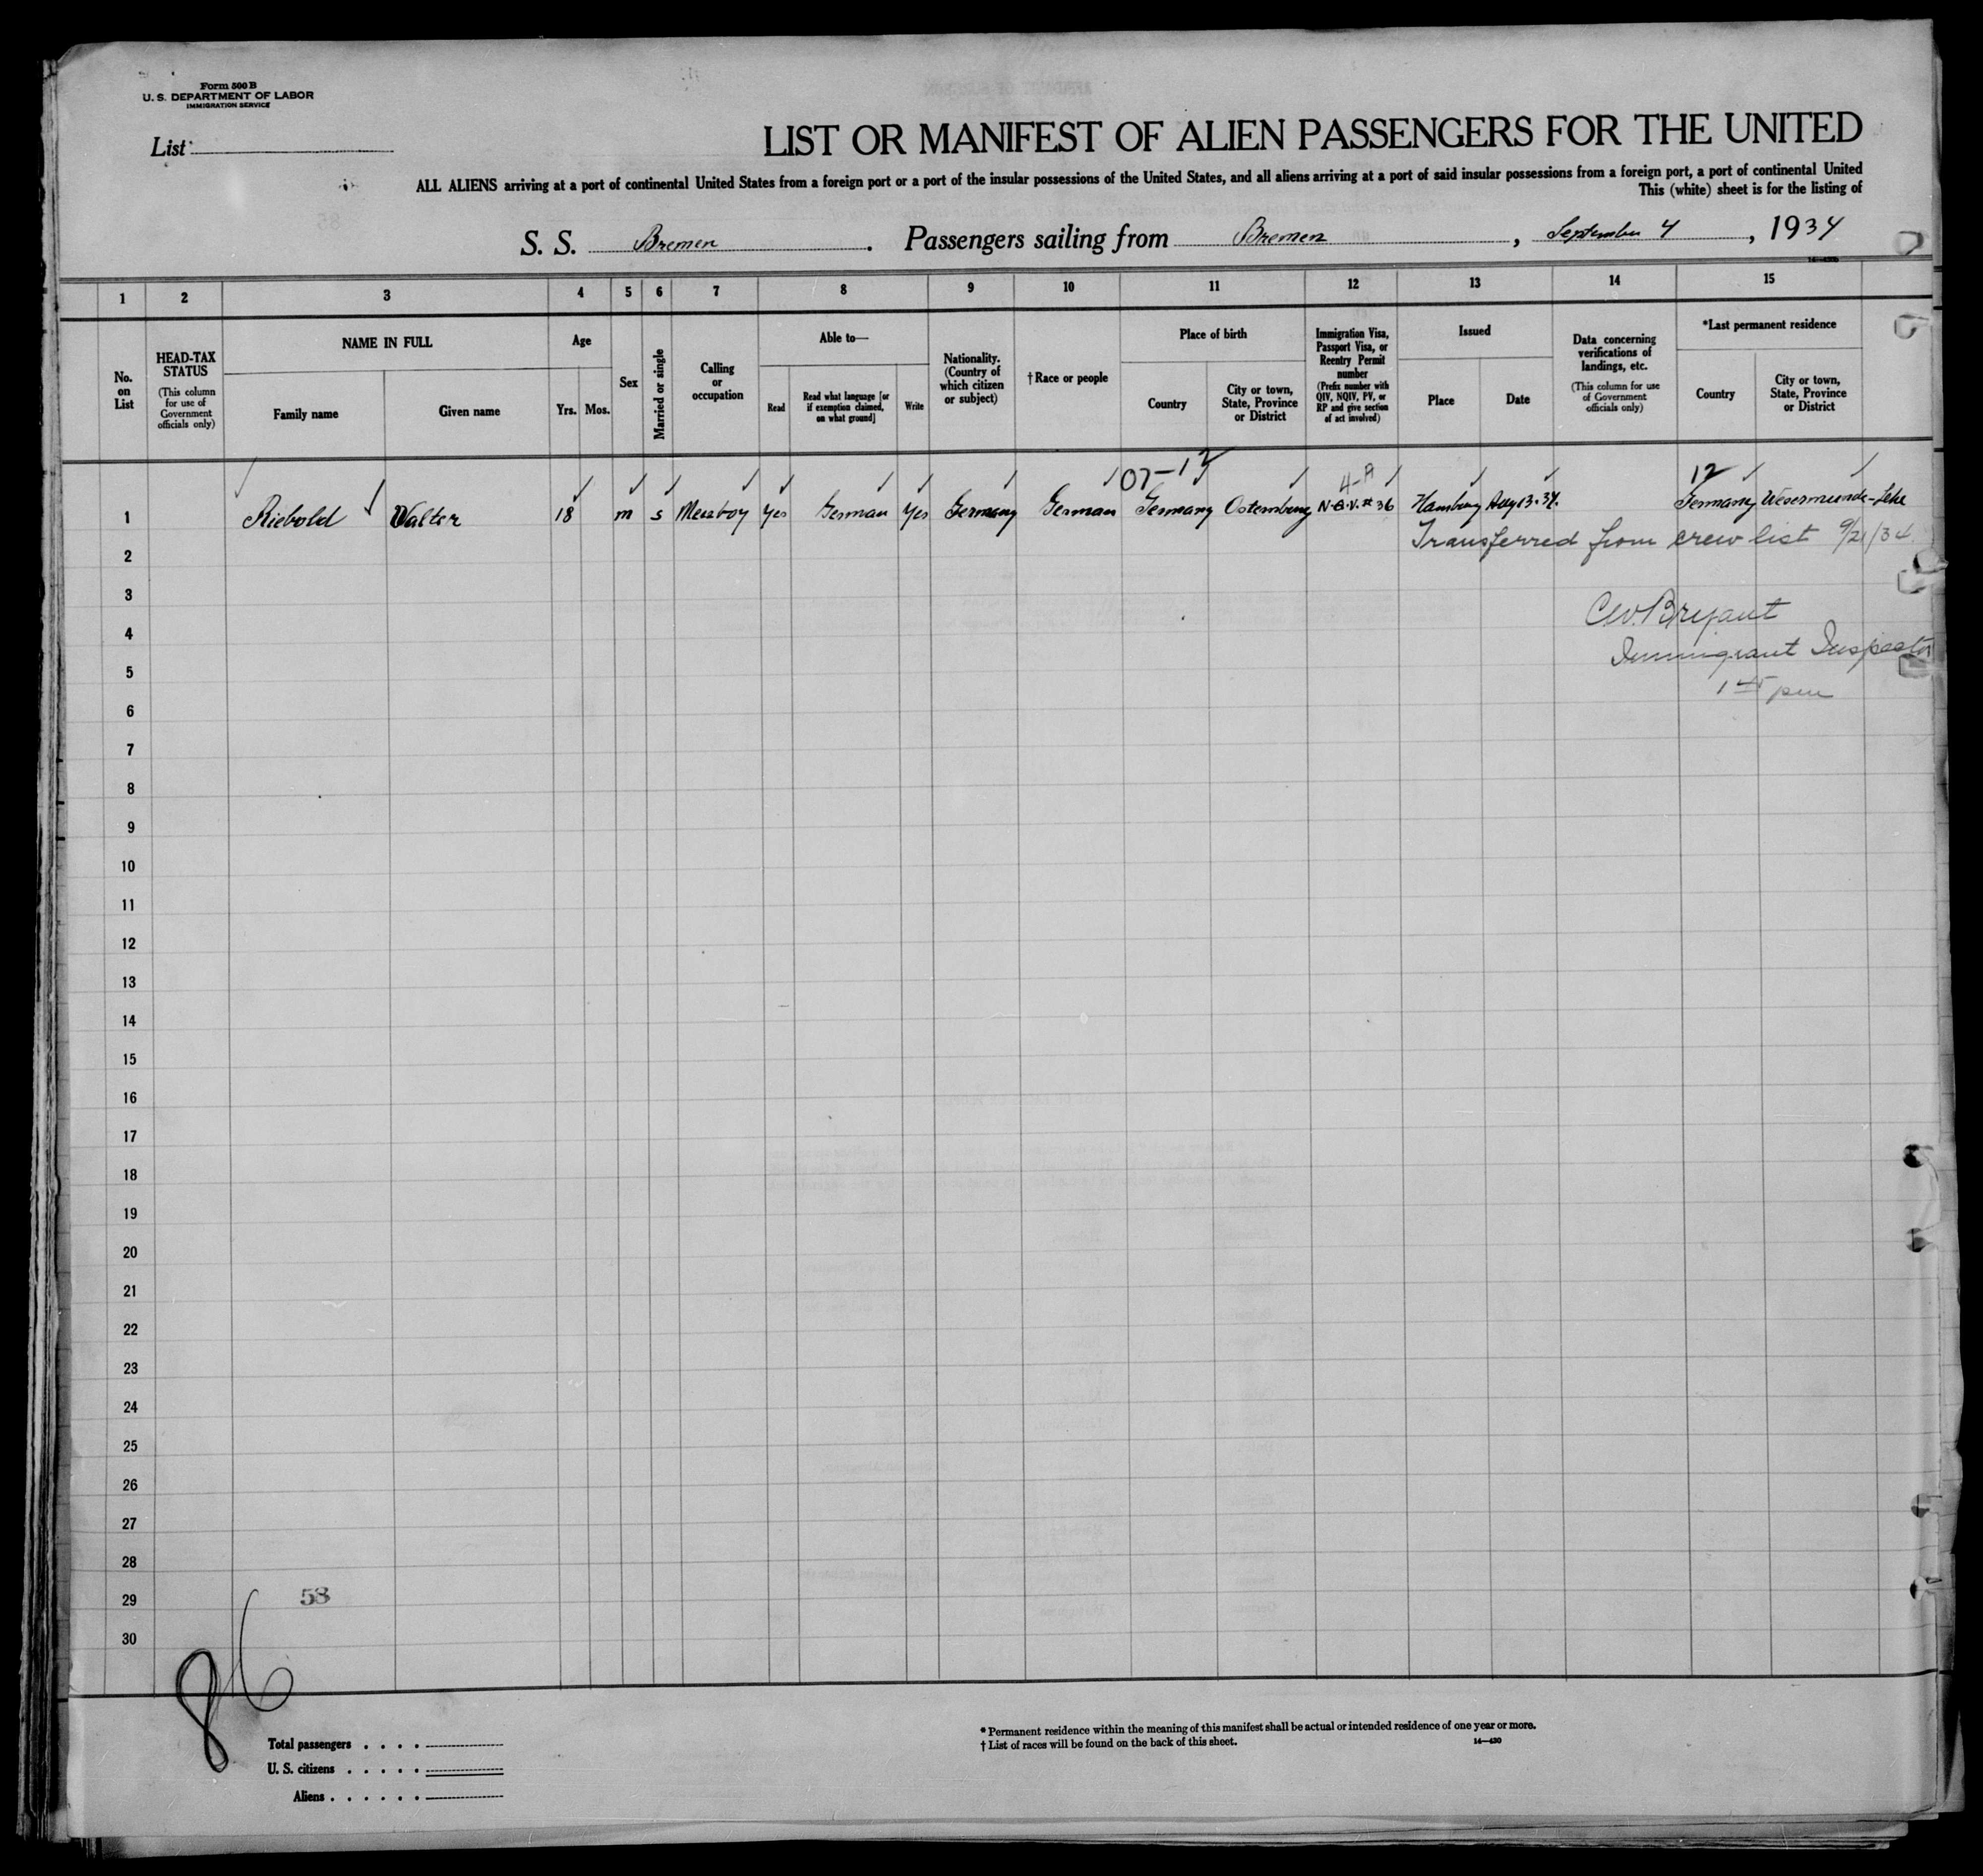 Form 500 B
U. S. DEPARTMENT OF LABOR
IMMIGRATION SERVICE
List
LIST OR MANIFEST OF ALIEN PASSENGERS FOR THE UNITED
ALL ALIENS arriving at a port of continental United States from a foreign port or a port of the insular possessions of the United States, and all aliens arriving at a port of said insular possessions from a foreign port, a port of continental United
This (white) sheet is for the listing of
S. S. Bremen. Passengers sailing from Bremen, September 4, 1934
1 2 3 4 5 6 7 8 9 10 11 12 13 14 15
No. on List
HEAD-TAX STATUS
(This column for use of Government officials only)
NAME IN FULL
Family name
Given name
Age
Yrs. Mos.
Sex
Married or single
Calling or occupation
Able to—
Read
Read what language [or if exemption claimed, on what ground]
Write
Nationality. (Country of which citizen or subject)
†Race or people
Place of birth
Country
City or town, State, Province or District
Immigration Visa, Passport Visa, or Reentry Permit number
(Prefix number with QIV, NQIV, PV, or RP and give section of act involved)
Issued
Place
Date
Data concerning verifications of landings, etc.
(This column for use of Government officials only)
*Last permanent residence
Country
City or town, State, Province or District
07-12 4-A 12
1 Riebold Walter 18 m s Messboy yes German yes Germany German Germany Osternburg #36 Hamburg 13-34. Germany Wesermünde-Lehe
Transferred from crew list 9/21/34
2
3
C.W. Bryant
4
Immigrant Inspector
5
pm
6
7
8
9
10
11
12
13
14
15
16
17
18
19
20
21
22
23
24
25
26
27
28
29 58
30
86
Total passengers
U. S. citizens
Aliens
* Permanent residence within the meaning of this manifest shall be actual or intended residence of one year or more.
† List of races will be found on the back of this sheet.
14—430